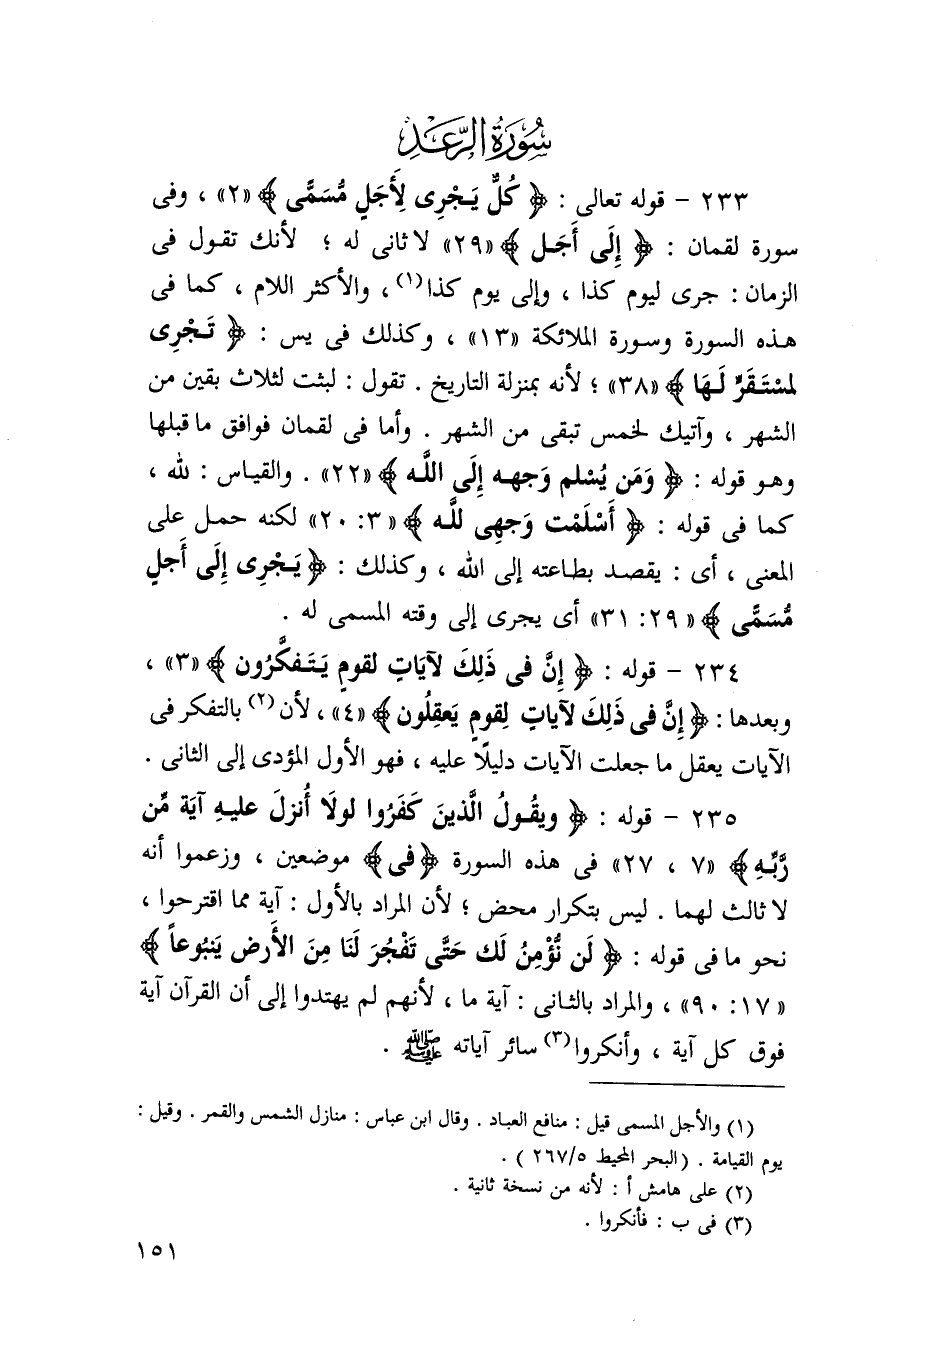 سُورَةُ الرَّعْدِ
٢٣٣ - قوله تعالى : ﴿ كُلٌّ يَجْرِى لِأَجَلٍ مُّسَمًّى ﴾ «٢» ، وفى
سورة لقمان : ﴿ إِلَى أَجَل ﴾ «٢٩» لا ثانى له ؛ لأنك تقول فى
الزمان : جرى ليوم كذا ، وإلى يوم كذا(١) ، والأكثر اللام ، كما فى
هذه السورة وسورة الملائكة «١٣» ، وكذلك فى يس : ﴿ تَجْرِى
لمسْتَقَرٍّ لَهَا ﴾ «٣٨» ؛ لأنه بمنزلة التاريخ . تقول : لبثت لثلاث بقين من
الشهر ، وآتيك لخمس تبقى من الشهر . وأما فى لقمان فوافق ما قبلها
وهو قوله : ﴿ وَمَن يُسْلم وَجهه إِلَى اللَّه ﴾ «٢٢» . والقياس : لله ،
كما فى قوله : ﴿ أَسْلَمْت وَجهِى للَّه ﴾ «٣: ٢٠» لكنه حمل على
المعنى ، أى : يقصد بطاعته إلى الله ، وكذلك : ﴿ يَجْرِى إِلَى أَجلٍ
مُّسَمًّى ﴾ «٢٩: ٣١» أى يجرى إلى وقته المسمى له .
٢٣٤ - قوله : ﴿ إِنَّ فى ذَلِكَ لآيَاتٍ لقومٍ يَتَفكَّرُون ﴾ «٣» ،
وبعدها : ﴿ إِنَّ فى ذَلِكَ لآياتٍ لِقومٍ يَعقِلُون ﴾ «٤» ، لأن(٢) بالتفكر فى
الآيات يعقل ما جعلت الآيات دليلًا عليه ، فهو الأول المؤدى إلى الثانى .
٢٣٥ - قوله : ﴿ ويقُولُ الَّذينَ كَفَرُوا لولَا أُنزلَ عليهِ آيَة مِّن
رَّبِّهِ ﴾ «٧ ، ٢٧» فى هذه السورة ﴿فى﴾ موضعين ، وزعموا أنه
لا ثالث لهما . ليس بتكرار محض ؛ لأن المراد بالأول : آية مما اقترحوا ،
نحو ما فى قوله : ﴿ لَن نُّؤْمِنُ لَك حَتَّى تَفْجُرَ لَنَا مِنَ الأَرضِ يَنبُوعاً ﴾
«١٧: ٩٠» ، والمراد بالثانى : آية ما ، لأنهم لم يهتدوا إلى أن القرآن آية
فوق كل آية ، وأنكروا(٣) سائر آياته ﷺ .
(١) والأجل المسمى قيل : منافع العباد . وقال ابن عباس : منازل الشمس والقمر . وقيل :
يوم القيامة . (البحر المحيط ٢٦٧/٥ ) .
(٢) على هامش أ : لأنه من نسخة ثانية .
(٣) فى ب : فأنكروا .
١٥١